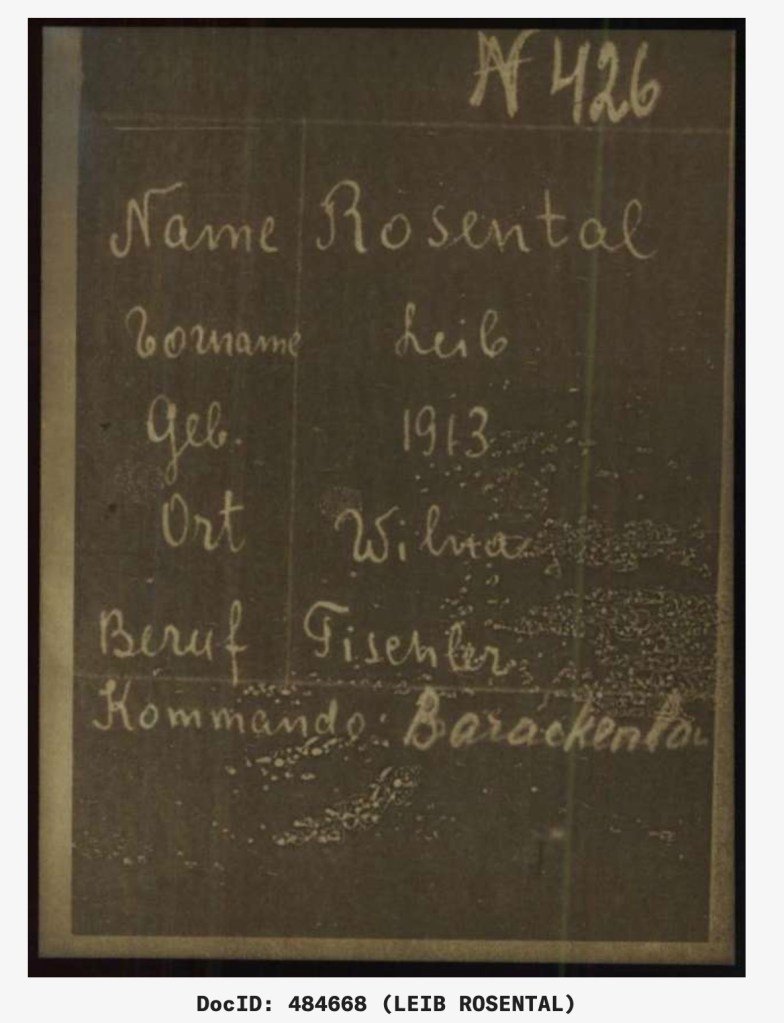 N 426
Name Rosental
Vorname Leib
Geb. 1913
Ort Wilna
Beruf Tischler
Kommando: Barackenbau
DocID: 484668 (LEIB ROSENTAL)